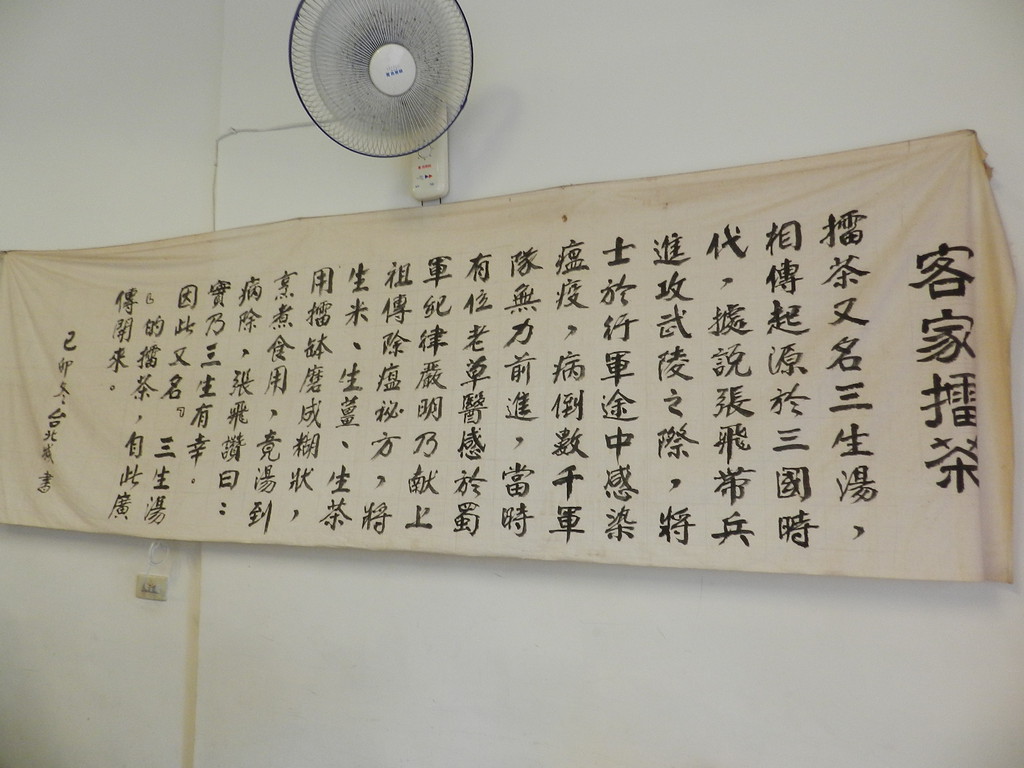 客家擂茶
擂茶又名三生湯，
相傳起源於三國時
代，據説張飛帶兵
進攻武陵之際，將
士於行軍途中感染
瘟疫，病倒數千軍
隊無力前進，當時
有位老草醫感於蜀
軍紀律嚴明乃献上
祖傳除瘟祕方，將
生米、生薑、生茶
用擂缽磨成糊狀，
烹煮食用，竟湯到
病除，張飛讚曰：
實乃三生有幸。
因此又名『三生湯
』的擂茶，自此廣
傳開來。
己卯冬台北 書